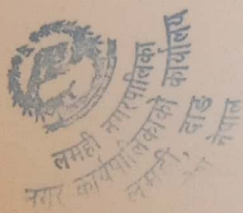 लमही नगरपालिका
नगर कार्यपालिकाको कार्यालय
लमही, दाङ
नेपाल